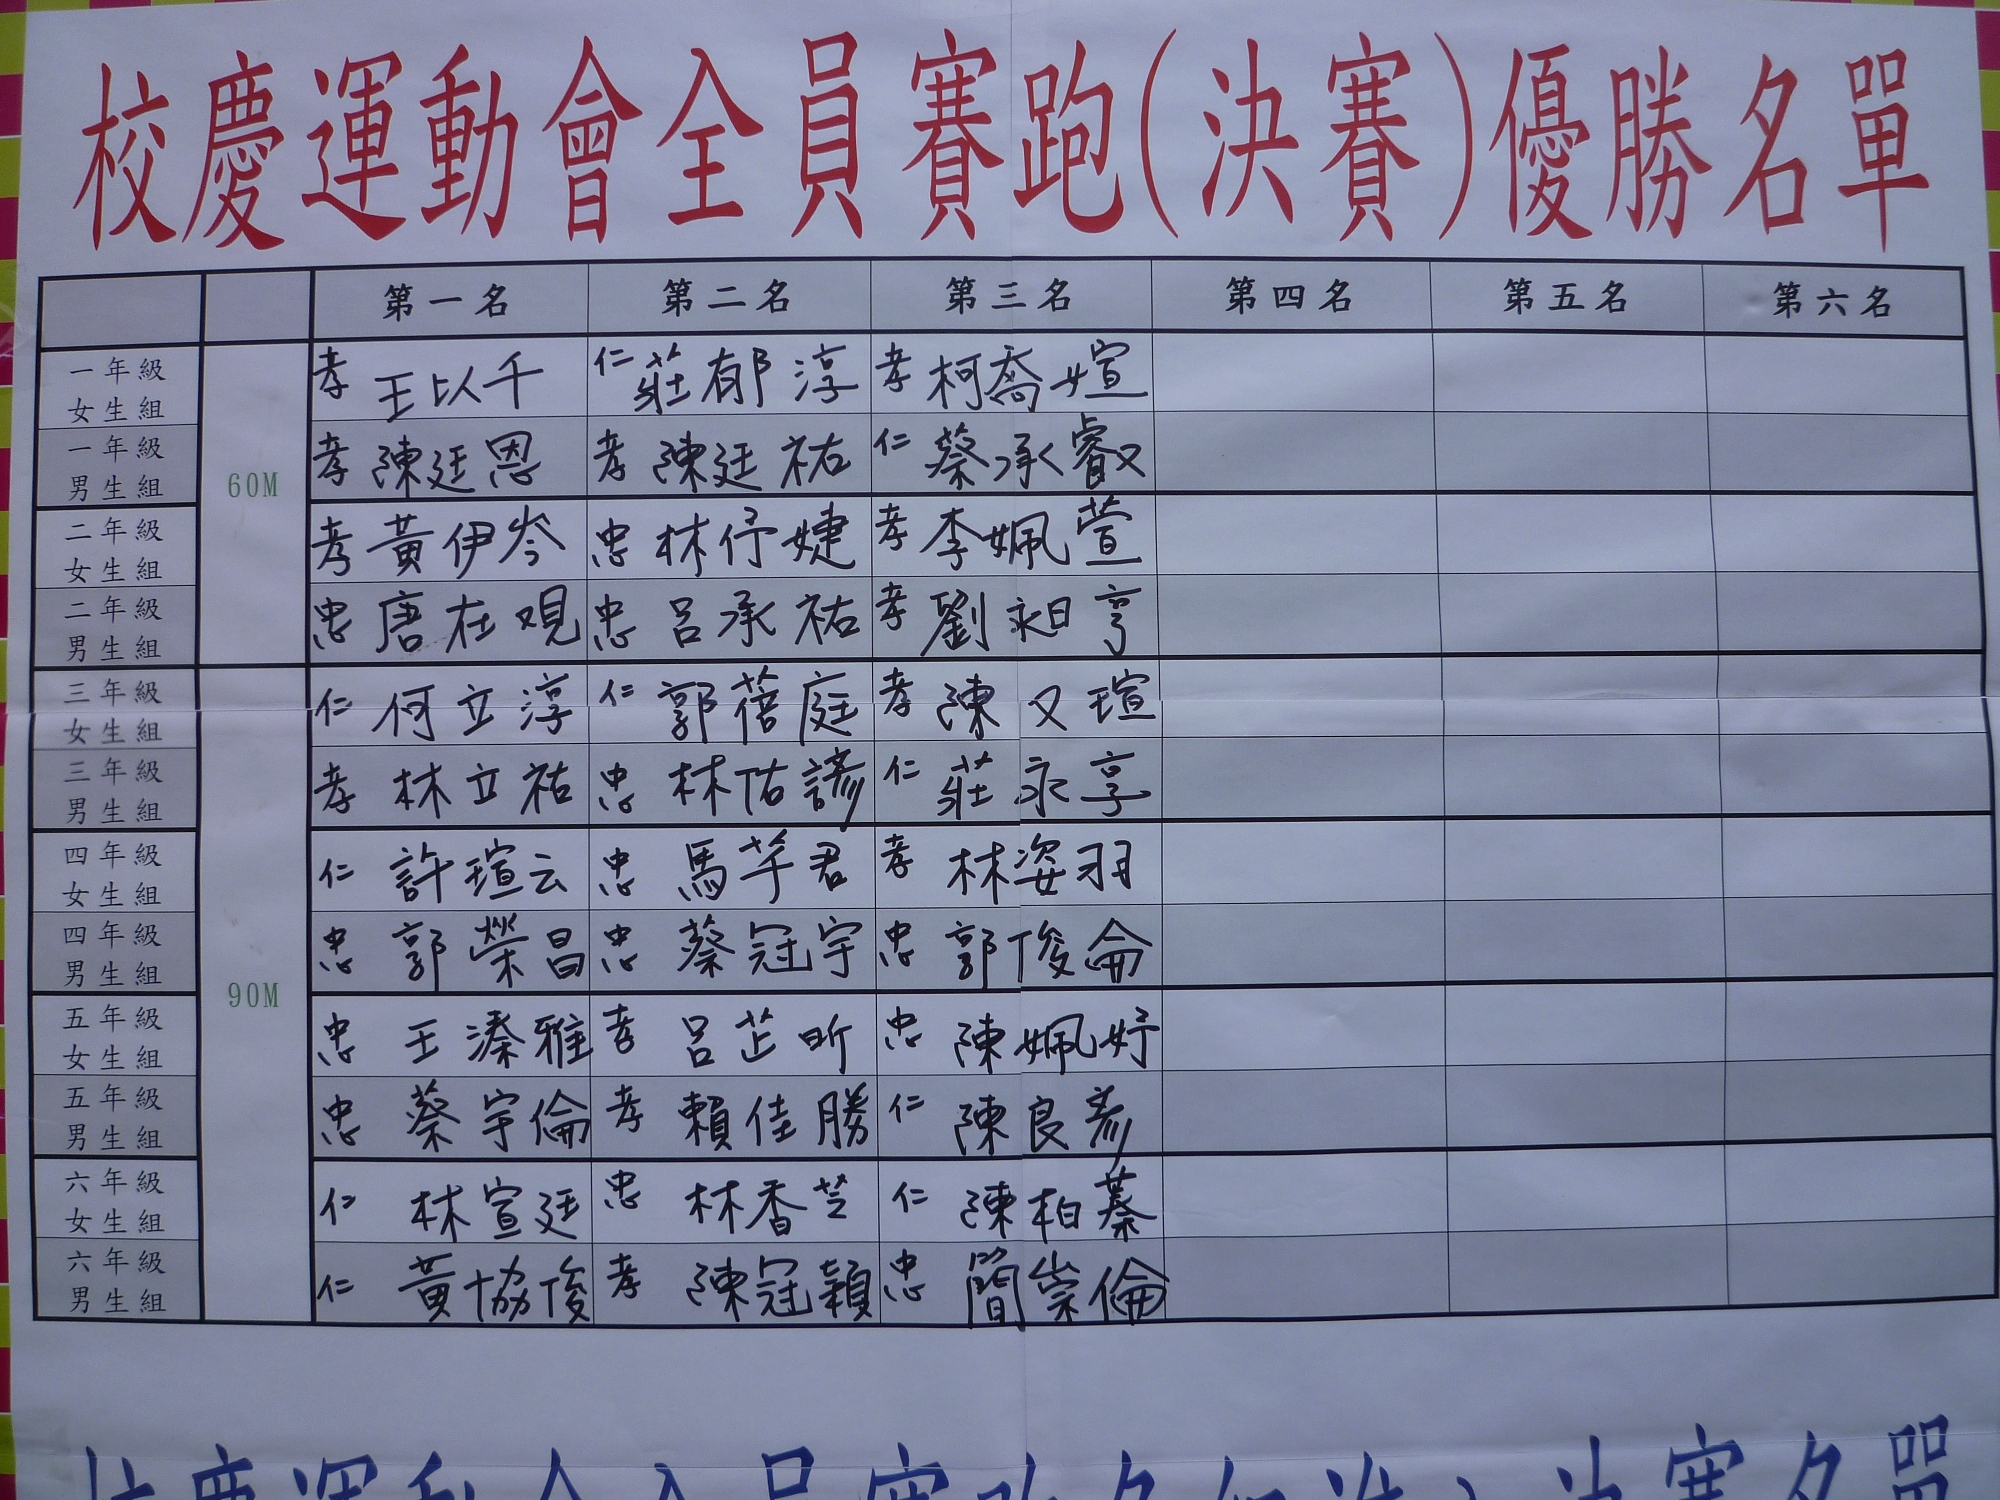 校慶運動會全員賽跑(決賽)優勝名單
第一名 第二名 第三名 第四名 第五名 第六名
一年級女生組 60M 孝 王以千 仁 莊郁淳 孝 柯喬媗
一年級男生組 孝 陳廷恩 孝 陳廷祐 仁 蔡承叡
二年級女生組 孝 黃伊岑 忠 林伃婕 孝 李姵萱
二年級男生組 忠 唐在覌 忠 呂承祐 孝 劉永昍亨
三年級女生組 90M 仁 何立淳 仁 郭蓓庭 孝 陳又瑄
三年級男生組 孝 林立祐 忠 林佑諺 仁 莊永享
四年級女生組 仁 許瑄云 忠 馬芓君 孝 林姿羽
四年級男生組 忠 郭榮昌 忠 蔡冠宇 忠 郭俊侖
五年級女生組 忠 王溱雅 孝 呂芷昕 忠 陳姵妤
五年級男生組 忠 蔡宇倫 孝 賴佳勝 仁 陳良彥
六年級女生組 仁 林宣廷 忠 林香芝 仁 陳柏蓁
六年級男生組 仁 黃協俊 孝 陳冠穎 忠 簡崇倫